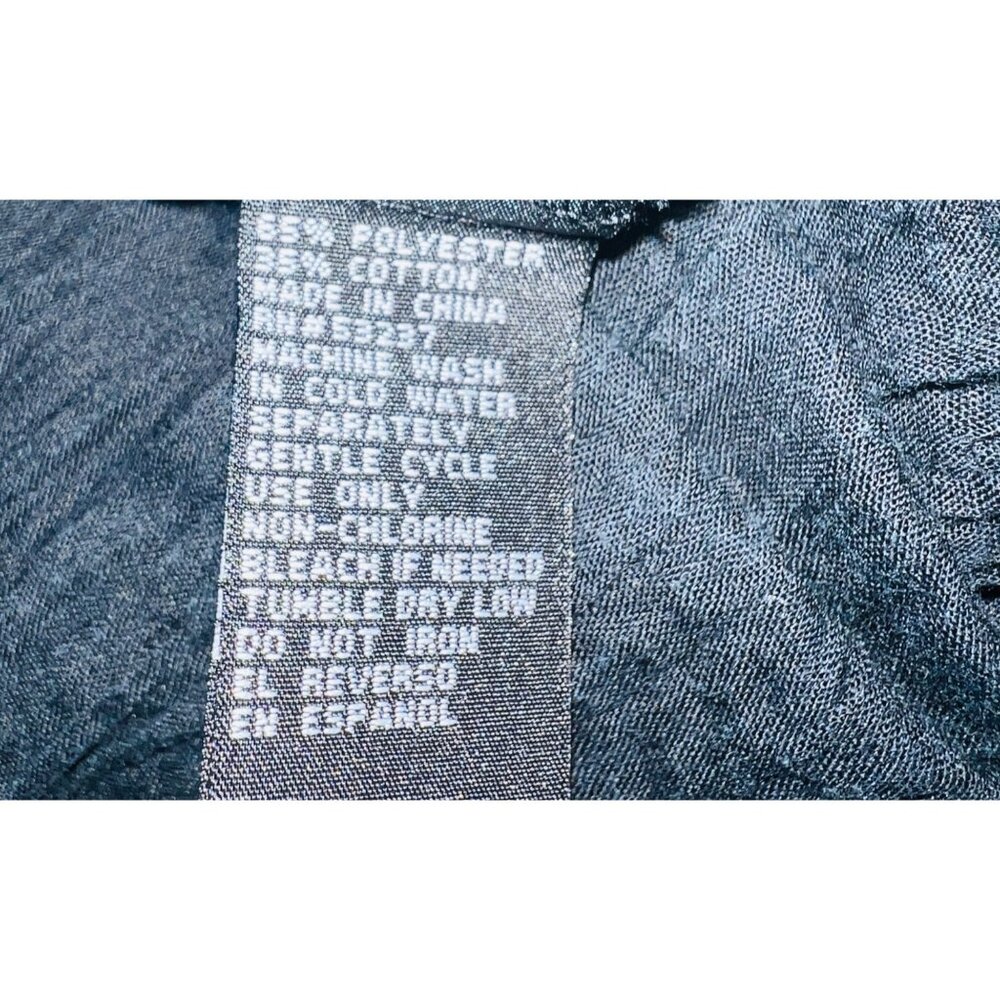 65% POLYESTER
35% COTTON
MADE IN CHINA
RN#53237
MACHINE WASH
IN COLD WATER
SEPARATELY
GENTLE CYCLE
USE ONLY
NON-CHLORINE
BLEACH IF NEEDED
TUMBLE DRY LOW
DO NOT IRON
EL REVERSO
EN ESPANOL